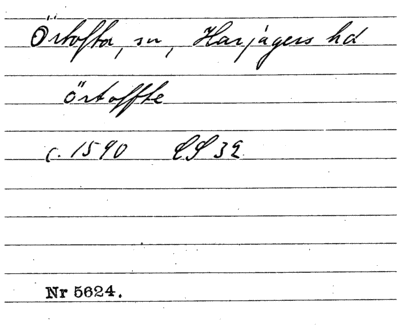 Örtofta, sn, Harjagers hd
örtoffte
c. 1590 LS 32
Nr 5624.